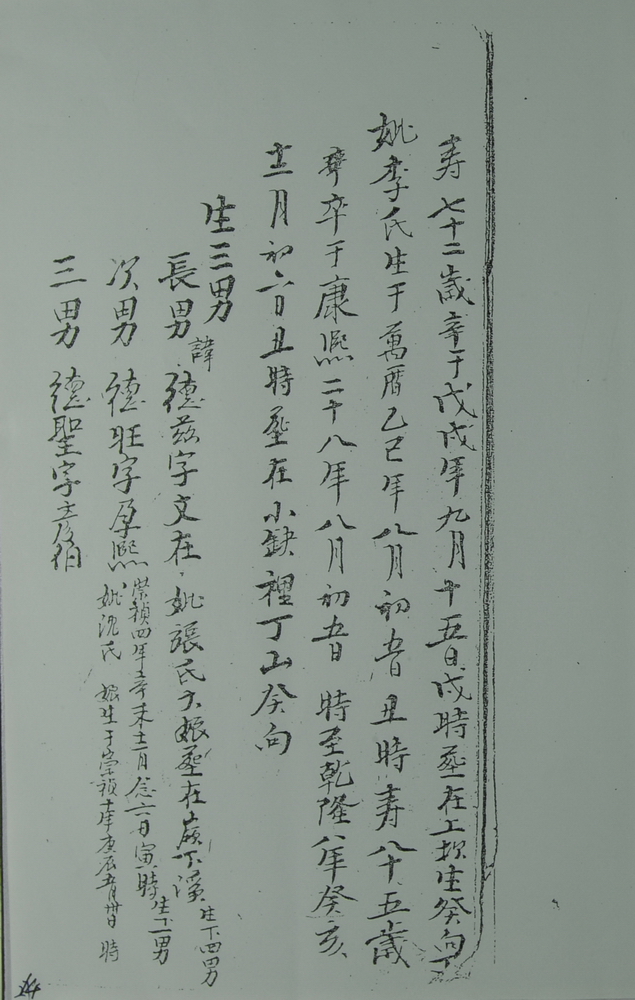 寿七十二歳卒于戊戌年九月十五日戌時塟在上坎坐癸向丁
妣李氏生于萬曆乙巳年八月初五日丑時寿八十五歳
卒于康熙二十八年八月初五日 時至乾隆八年癸亥
十二月初六日丑時塟在小缺裡丁山癸向
生三男
長男諱德茲字文在妣張氏大娘塟在蕨下漢生下四男
次男 德旺字孕熙崇禎四年辛未十二月念六日寅時生下一男
妣沈氏 娘生于崇禎十年庚辰五月廿日 時
三男 德聖字士
14